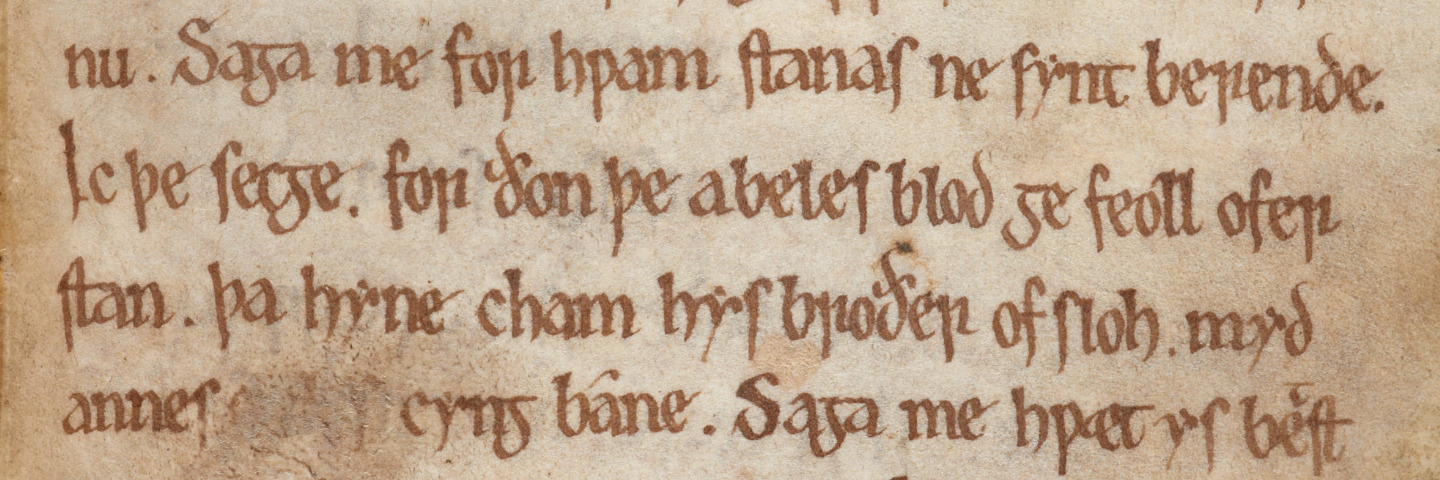 nu. Saga me for hƿam stanas ne synt berende.
Ic þe secge. for ðon þe abeles blod ge feoll ofer
stan. þa hyne cham hys broðer of sloh. myd
annes cyng báne. Saga me hƿæt ys bést